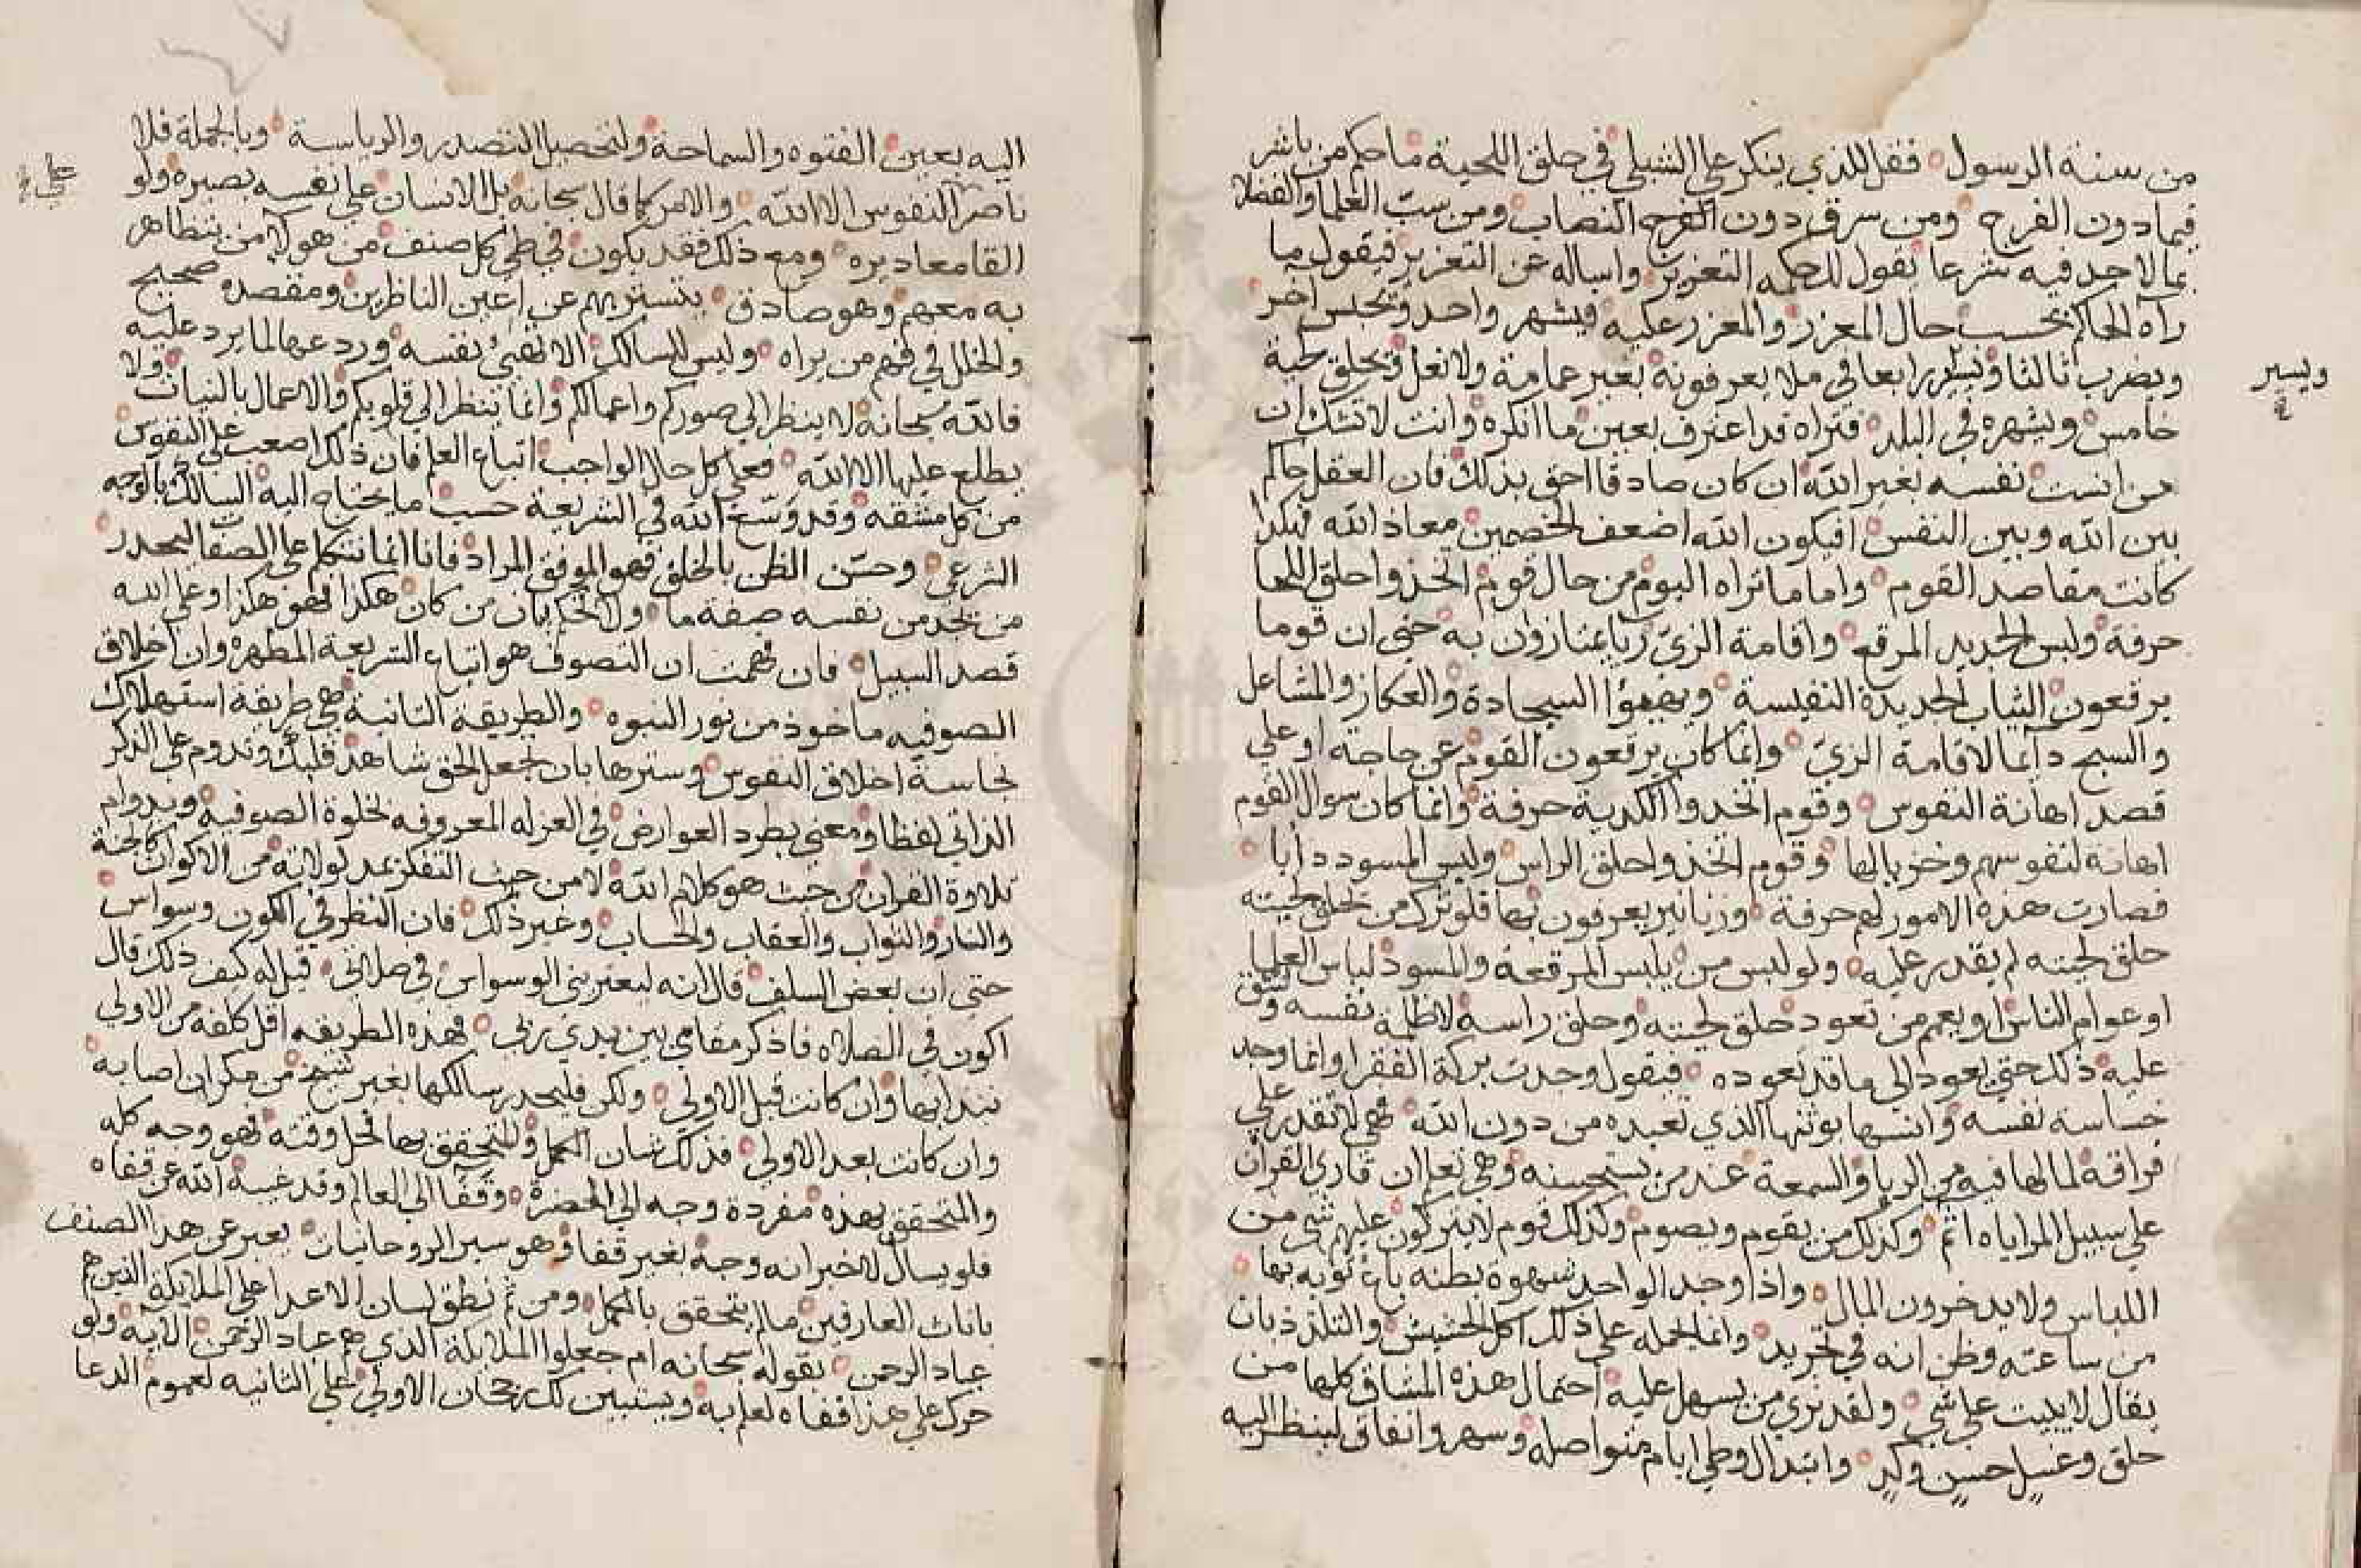 من سنة الرسول ٥ فقل للذي ينكر علي الشبلي في حلق اللحية ٥ ما حكم من باشر
فيما دون الفرج ٥ ومن سرق دون النصاب ٥ ومن سب العلما والفضلا
مما لا حد فيه شرعا يقول لك حكمه التعزير ٥ واساله عن التعزير فيقول ما
راه الحاكم بحسب حال المعزر والمعزر عليه ٥ فيشهر واحد ويحبس اخر ٥
ويضرب ثالثا ويسير رابعا في ملا يعرفونه بغير عمامة ولا نعل ويحلق لحية
خامس ويشهره في البلد ٥ فتراه قد اعترف بعين ما انكره ٥ وانت لا تشك ان
من انست نفسه بغير الله ان كان صادقا احق بذلك فان العقل حاكم
بين الله وبين النفس ٥ افيكون الله اضعف الخصمين ٥ معاذ الله فهكذا
كانت مقاصد القوم ٥ واما ما تراه اليوم من حال قوم اتخذوا حلق اللحا
حرفة ٥ ولبس الجديد المرقع ٥ واقامة الزي ريا يمتازون به ٥ حتي ان قوما
يرقعون الثياب الجديدة النفيسة ٥ ويهيؤا السجادة والعكاز والمشاعل
والسبح دائما لاقامة الزي ٥ وانما كان يرقعون القوم عن حاجة او علي
قصد اهانة النفوس ٥ وقوم اتخذوا الكدية حرفة ٥ وانما كان سوال القوم
اهانة لنفوسهم وخزيا لها ٥ وقوم اتخذوا حلق الراس ٥ ولبس المسود دابا ٥
فصارت هذه الامور لهم حرفة ٥ وزنانير يعرفون بها فلو ترك من تحلق لحيته
حلق لحيته لم يقدر عليه ٥ ولو لبس من يلبس المرقعة والمسود لباس العلما
او عوام الناس او يعمم من تعود حلق لحيته ٥ وحلق راسه لاظلمت نفسه وشق
عليه ذلك حتي يعود الي ما قد تعوده ٥ فيقول وجدت بركة الفقرا وانما وجد
خساسة نفسه ٥ وانسها بوثنها الذي تعبده من دون الله ٥ فهي لا تقدر علي
فراقه ٥ لما لها فيه من الريا والسمعة عند من يستحسنه ٥ وهي تعلم ان قاري القران
علي سبيل المراياه اثم ٥ وكذلك من يقوم ويصوم ٥ وكذلك قوم لا يتركون عليهم شي من
اللباس ولا يدخرون المال ٥ واذا وجد الواحد شهوة بطنه باع ثوبه بها ٥
من ساعته وظن انه في تجريد ٥ وانما يحمله علي ذلك اكل الحشيش ٥ والتلذذ بان
يقال لا يبيت علي شي ٥ ولقد نري من يسهل عليه ٥ احتمال هذه المشاق كلها من
حلق وغسل حسن وكي ٥ وابتذال وطي ايام متواصلة وسهر وانفاق لينظر اليه
ويسير
اليه بعين الفتوه والسماحة ٥ ولتحصيل التصدر والرياسة ٥ وبالجملة فلا
ناصر النفوس الا الله ٥ والامر كما قال سبحانه بل الانسان علي نفسه بصيره ٥ ولو
القا معاديره ٥ ومع ذلك فقد يكون في طي كل صنف من هولا من يتظاهر
به معهم وهو صادق ٥ يتستر بهم عن اعين الناظرين ٥ ومقصده صحيح
والخلل في فهم من يراه ٥ وليس للسالك الا تفتي نفسه ٥ وردعها لما يرد عليه
فالله سبحانه لا ينظر الي صوركم واعمالكم وانما ينظر الي قلوبكم ٥ والاعمال بالنيات ٥ ولا
يطلع عليها الا الله ٥ فعلي كل حال الواجب اتباع العلم فان ذلك اصعب علي النفوس ٥
من كل مشقة ٥ وقد وسع الله في الشريعة حسب ما يحتاج اليه السالك بالوجه
الشرعي ٥ وحسن الظن بالخلق فهو الموفق المراد ٥ فانا انما نتكلم علي الصفات ليحذر ٥
من يجد من نفسه صفة ما ٥ ولا نحكم بان من كان هكذا فهو هكذا وعلي الله
قصد السبيل ٥ فان فهمت ان التصوف هو اتباع الشريعة المطهره وان اخلاق
الصوفيه ماخوذ من نور النبوه ٥ والطريقة الثانية ٥ هي طريقة استهلاك
نجاسة اخلاق النفوس وسترها بان تجعل الحق شاهد قلبك وتدوم علي الذكر
الذاتي لفظا ومعني بطرد العوارض في العزله المعروفه بخلوة الصوفية ٥ وبدوام
تلاوة القران من حيث هو كلام الله لا من حيث التفكر بمدلولاته من الاكوان كالجنة
والنار والثواب والعقاب والحساب وغير ذلك ٥ فان النظر في الكون وسواس ٥
حتي ان بعض السلف ٥ قال انه ليعتريني الوسواس في صلاتي ٥ قيل له كيف ذلك قال
اكون في الصلاه فاذكر مقامي بين يدي ربي ٥ فهذه الطريقه اقل كلفه من الاولي
نبتدابها وان كانت قبل الاولي ٥ ولكن فليحذر سالكها بغير شيخ من مكر ان اصابه ٥
وان كانت بعد الاولي ٥ فذلك شان الكمل ٥ وللتحقق بها فحل وقته ٥ فهو وجه كله
والمتحقق بهذه مفردة وجه الي الحضرة ٥ وقفا الي العالم وقد غيبه الله عن قفاه
فلو يسال لاخبر انه وجه بغير قفا ٥ فهو سير الروحانيات ٥ يعبر عن هذا الصنف
باناث العارفين ما لم يتحقق بالكمل ٥ ومن ثم نطق لسان الاعدا علي الملايكة الذين هم
عباد الرحمن ٥ بقوله سبحانه ام جعلوا الملايكة الذي هم عباد الرحمن الاية ٥ ولو
حرك علي هذا قفاه لعلم به ٥ ويستبين لك رجحان الاولي علي الثانيه لعموم الدعا